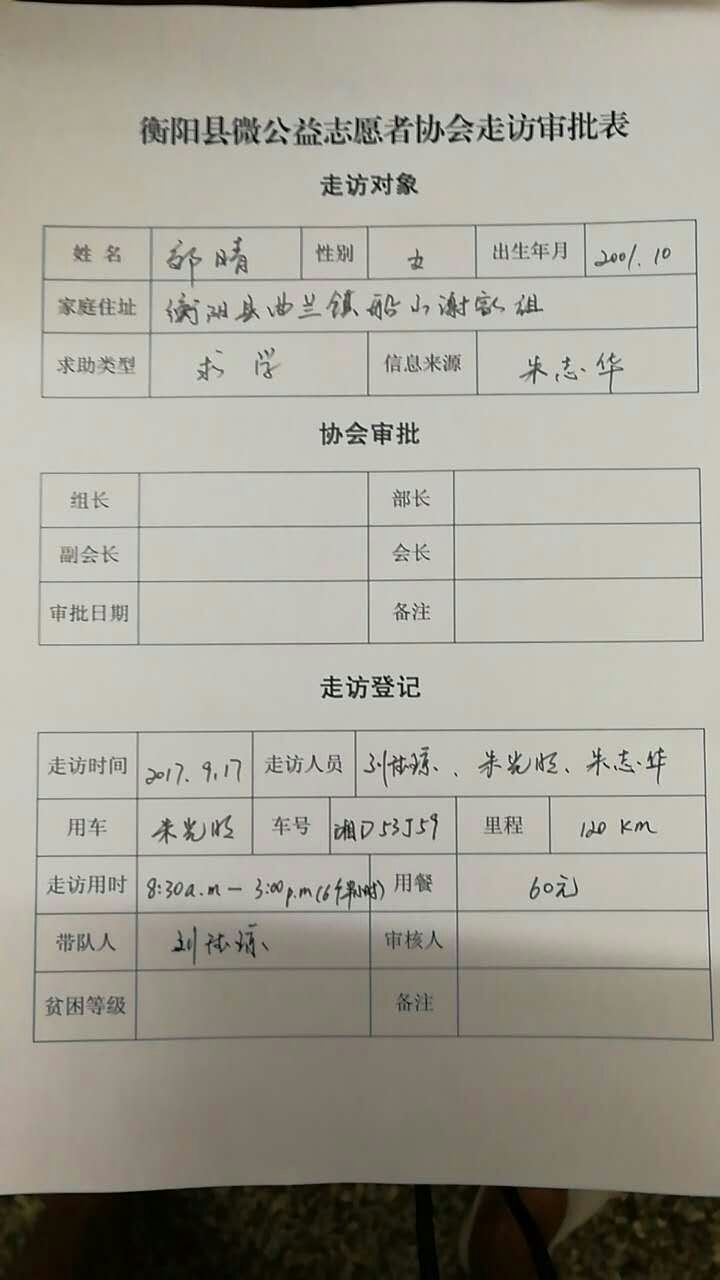 衡阳县微公益志愿者协会走访审批表
走访对象
姓名 邹晴 性别 女 出生年月 2001.10
家庭住址 衡阳县曲兰镇船山谢家组
求助类型 求学 信息来源 朱志华
协会审批
组长 部长
副会长 会长
审批日期 备注
走访登记
走访时间 2017.9.17 走访人员 刘 琼、朱光明、朱志华
用车 朱光明 车号 湘D53J59 里程 120 KM
走访用时 8:30a.m — 3:00p.m(6个半小时) 用餐 60元
带队人 刘 琼 审核人
贫困等级 备注